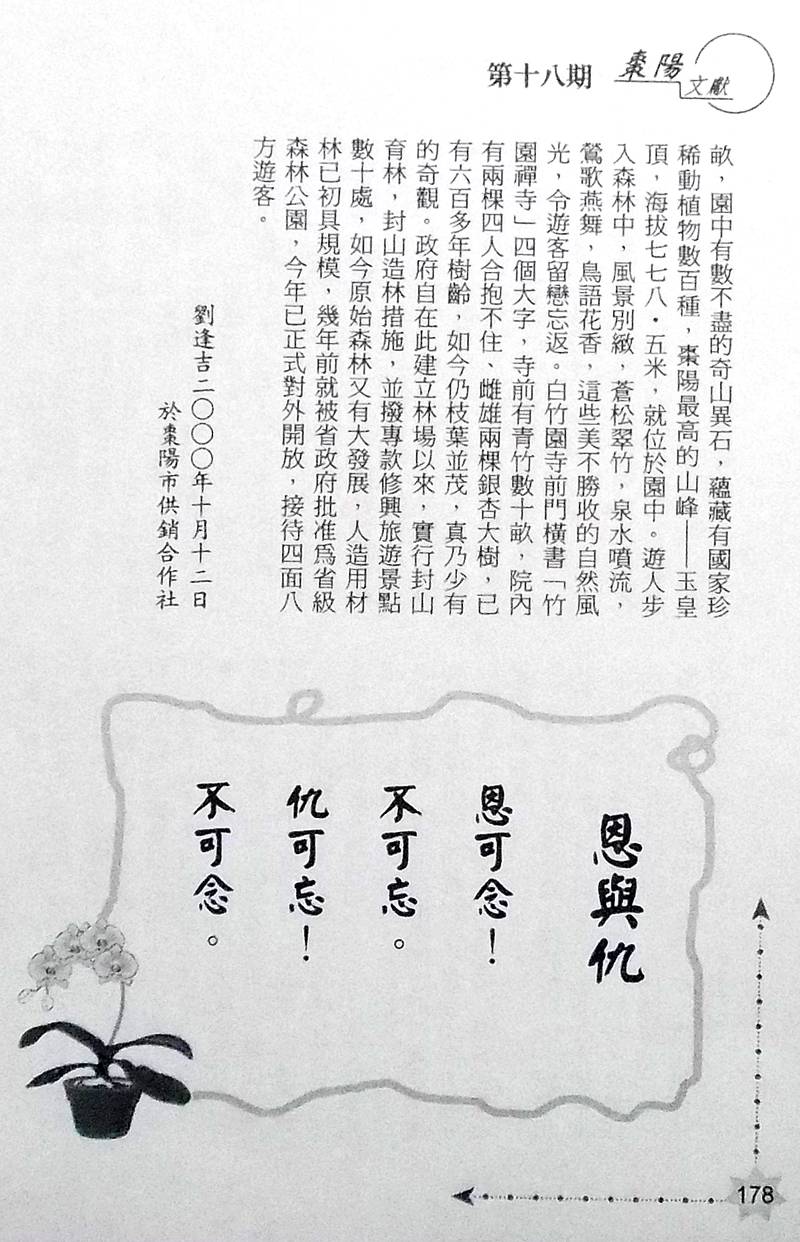 第十八期
棗陽
文獻
畝，園中有數不盡的奇山異石，蘊藏有國家珍
稀動植物數百種，棗陽最高的山峰——玉皇
頂，海拔七七八·五米，就位於園中。遊人步
入森林中，風景別緻，蒼松翠竹，泉水噴流，
鶯歌燕舞，鳥語花香，這些美不勝收的自然風
光，令遊客留戀忘返。白竹園寺前門橫書「竹
園禪寺」四個大字，寺前有青竹數十畝，院內
有兩棵四人合抱不住、雌雄兩棵銀杏大樹，已
有六百多年樹齡，如今仍枝葉並茂，真乃少有
的奇觀。政府自在此建立林場以來，實行封山
育林，封山造林措施，並撥專款修興旅遊景點
數十處，如今原始森林又有大發展，人造用材
林已初具規模，幾年前就被省政府批准爲省級
森林公園，今年已正式對外開放，接待四面八
方遊客。
劉逢吉二〇〇〇年十月十二日
於棗陽市供銷合作社
恩與仇
恩可念！
不可忘。
仇可忘！
不可念。
178